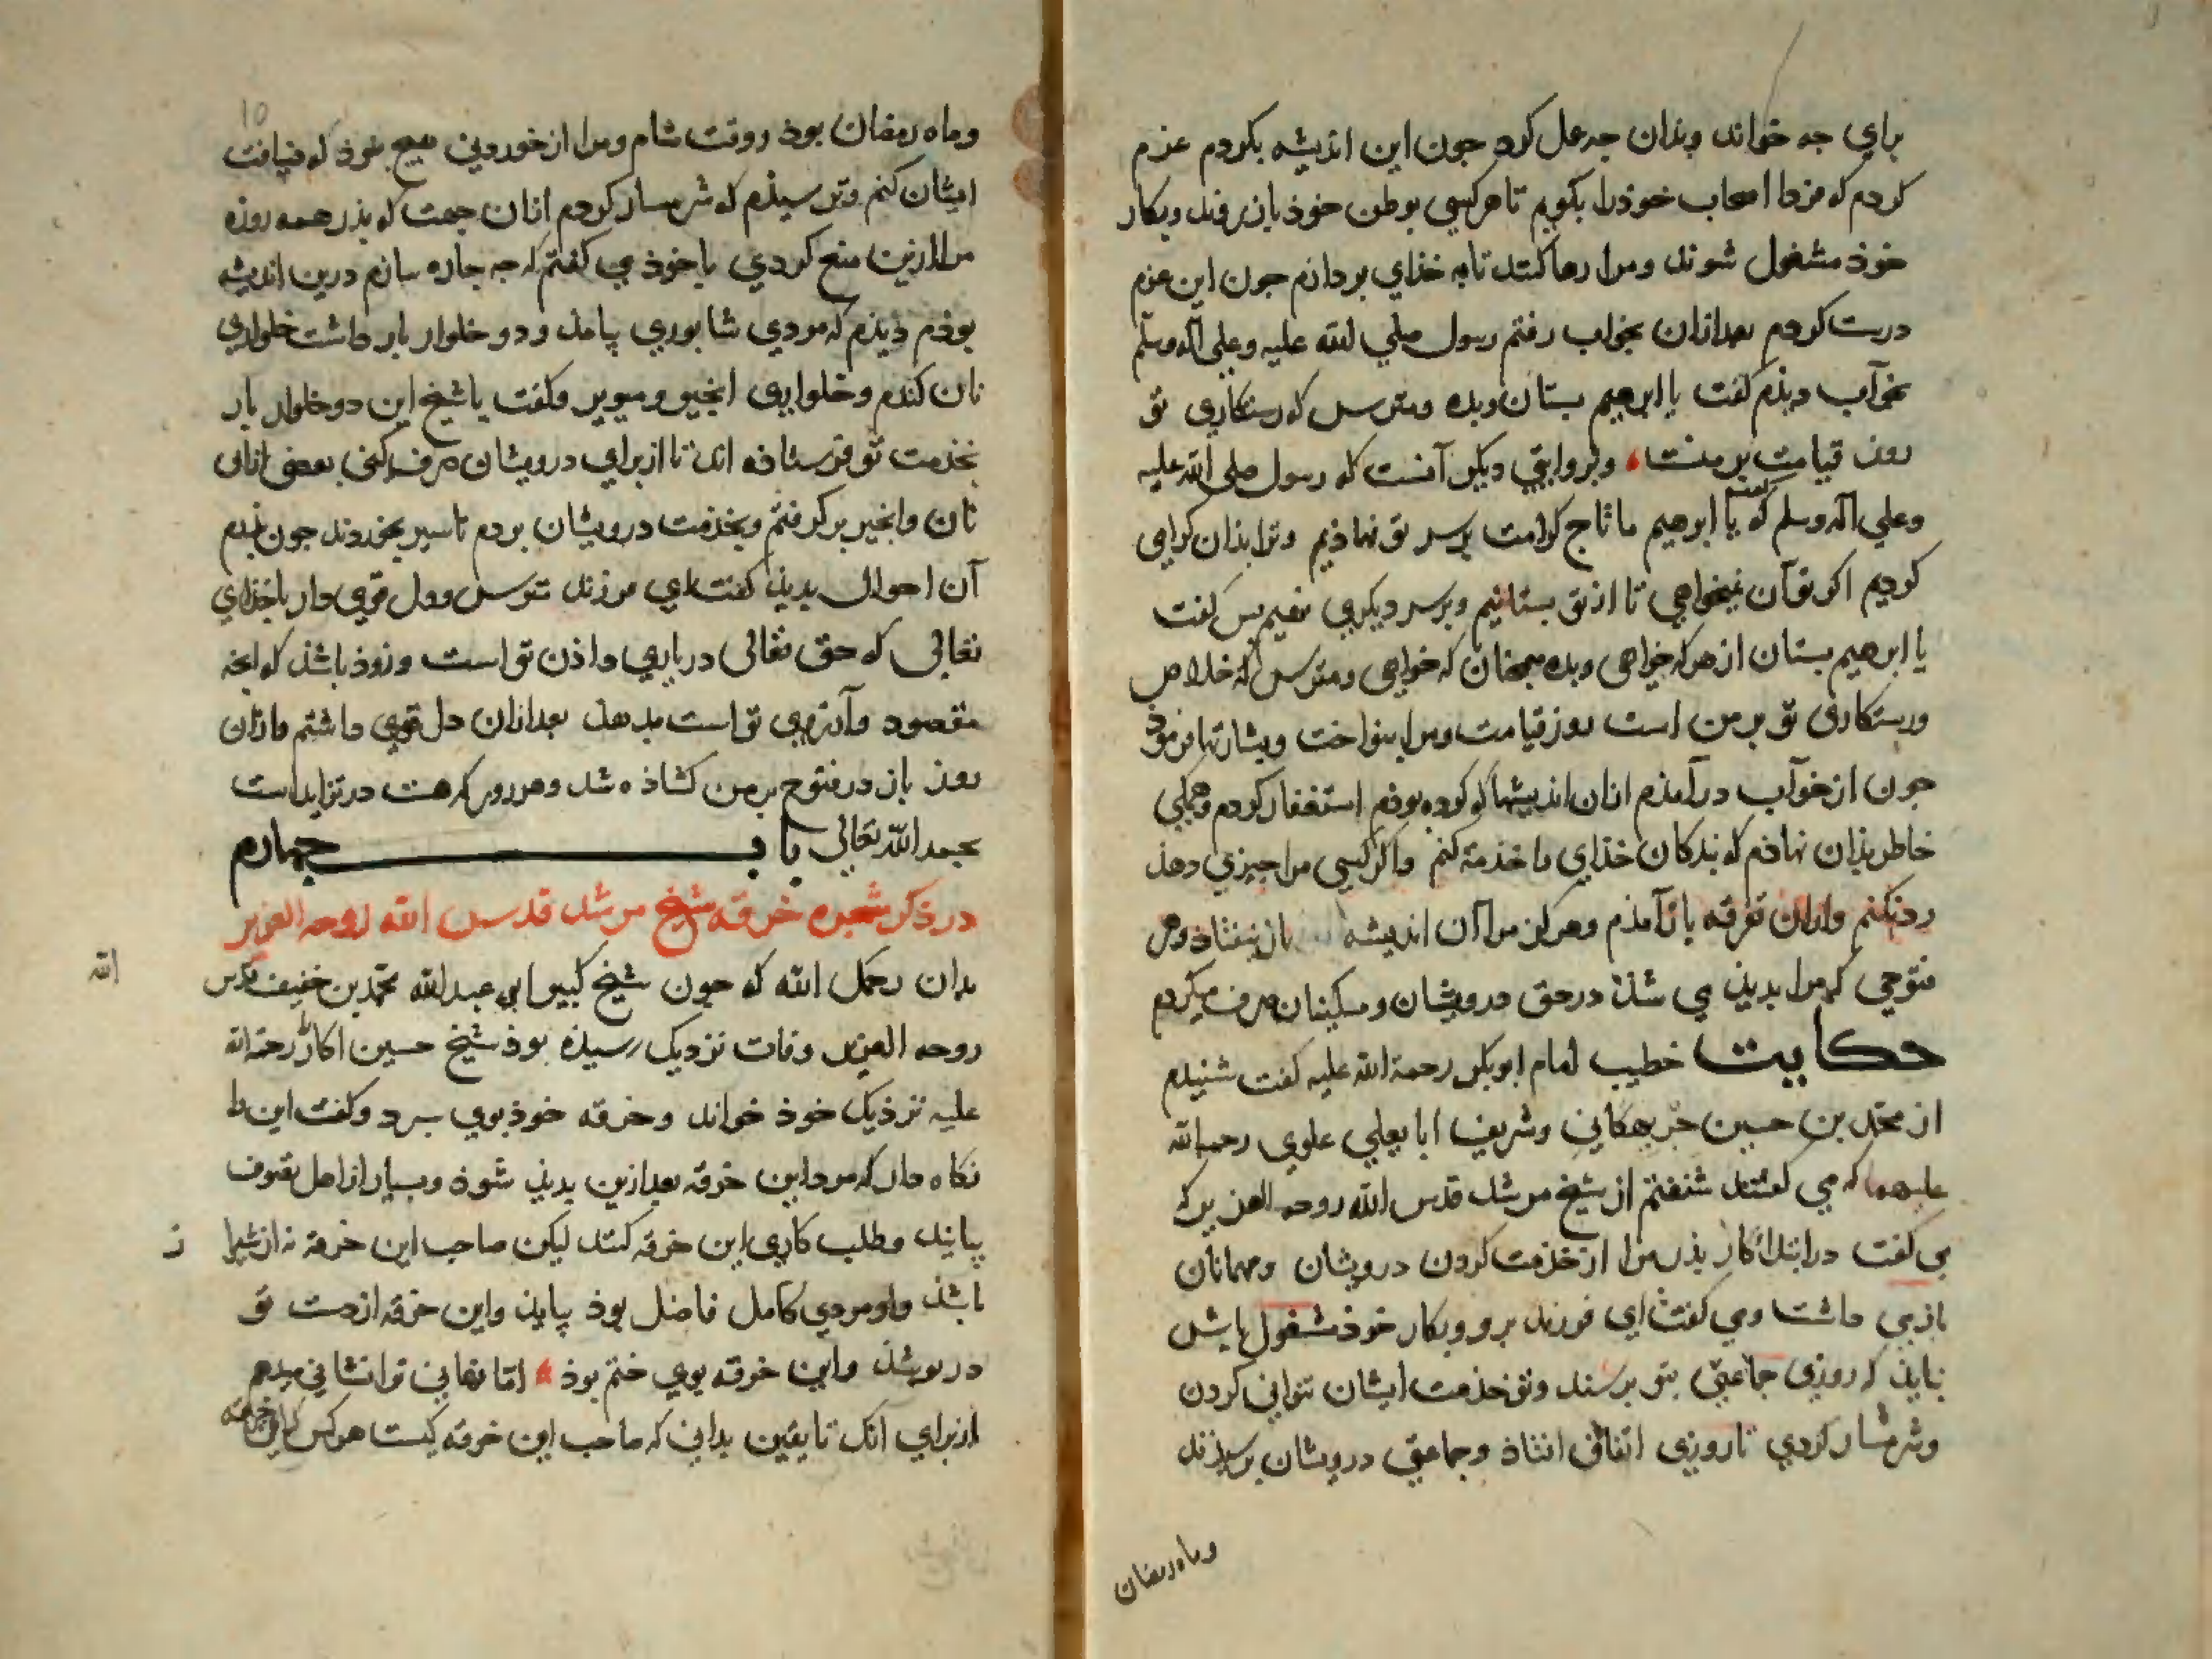 براي جه خواند وبذان جه عمل كرد جون اين انديشه بكردم عزم
كردم كه فردا اصحاب خوذ را بكويم تا هركسي بوطن خوذ باز روند وبكار
خوذ مشغول شوند ومرا رها كنند تا به خذاي بردازم جون اين عزم
درست كردم بعد ازان بخواب رفتم رسول صلي الله عليه وعلي آله وسلم
بخوآب ديذم كفت يا ابرهيم بستان وبده ومترس كه رستكاري تو
روز قيامت بر منست وبروايتي ديكر آنست كه رسول صلي الله عليه
وعلي آله وسلم كفت كه يا ابرهيم ما تاج كرامت برسر تو نهاذيم وترا بذان كرامي
كرديم اكر تو آن نميخواهي تا از تو بستانيم وبرسر ديكري نهيم بس كفت
يا ابرهيم بستان از هركه خواهي وبده بهمجنان كه خواهي ومترس كه خلاص
ورستكاري تو بر من است روز قيامت ومرا بنواخت وبشارتها فرموذ
جون از خوآب درآمذم ازان انديشها كه كرده بوذم استغفار كردم وهمكي
خاطر بذان نهاذم كه بندكان خذاي را خذمة كنم واكر كسي مرا جيزي دهذ
رد نكنم وازان تفرقه باز آمذم وهركز مرا آن انديشه باز نيفتاذ وهر
فتوحي كه مرا بديذ مي شذ در حق درويشان ومسكينان صرف ميكردم
حكايت خطيب امام ابوبكر رحمة الله عليه كفت شنيدم
از محمد بن حسين وشريف ابا يعلي علوي رحمة الله
عليهما كه مي كفتند شنفتم از شيخ مرشد قدس الله روحه العزيز كه
مي كفت در ابتداء كار بذر مرا از خذمت كردن درويشان ومهمانان
باز مي داشت ومي كفت اي فرزند برو وبكار خوذ مشغول باش
نبايذ كه روزي جماعتي بتو برسند وتو خذمت ايشان نتواني كردن
وشرمسار كردي تا روزي اتفاق افتاذ وجماعتي درويشان برسيذند
وماه رمضان
10
وماه رمضان بوذ ووقت شام ومرا از خوردني هيج نبوذ كه ضيافت
ايشان كنم وترسيذم كه شرمسار كردم ازان جهت كه بذر همه روزه
مرا ازين منع كردي با خوذ مي كفتم كه جه جاره سازم درين انديشه
بوذم ديذم كه مردي شابوري پامذ ودو خلوار بار داشت خلواري
نان كندم وخلواري انجير ومويز وكفت يا شيخ اين دو خلوار بار
بخذمت تو فرستاذه اند تا از براي درويشان صرف كني بعضي ازان
نان وانجير بركرفتم وبخذمت درويشان بردم تا سير بخوردند جون بذرم
آن احوال بديذ كفت اي فرزند مترس ودل قوي دار با خذاي
تعالي كه حق تعالى در ياري داذن تو است وزوذ باشذ كه انجه
مقصود وآرزوي تو است بدهذ بعد ازان دل قوي داشتم وازان
روز باز در فتوح بر من كشاذه شد وهر روز كه هست در تزايد است
بحمد الله تعالي باب جهارم
در ذكر شجره خرقه شيخ مرشد قدس الله روحه العزيز
بدان رحمك الله كه جون شيخ كبير ابي عبدالله محمد بن خفيف قدس
الله
روحه العزيز وفات نزديك رسيذه بوذ شيخ حسين اكار رحمة الله
عليه نزديك خوذ خواند وخرقه خوذ بوي سبرد وكفت اين را
نكاه دار كه مرد اين خرقه بعد ازين بديذ شوذ وبسيار از اهل تصوف
پيايند وطلب كاري اين خرقه كنند ليكن صاحب اين خرقه نه از شيراز
باشذ واو مردي كامل فاضل بوذ پايذ واين خرقه از دست تو
در بوشذ واين خرقه بوي ختم بوذ اما نهاني ترا نشاني ميدهم
از براي انك تا بيقين بداني كه صاحب اين خرقه كيست هركس كه اين خرقه